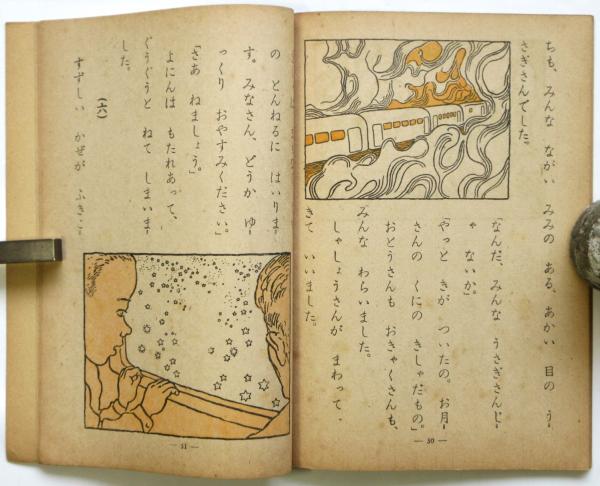 ちも、みんな ながい みみの ある、あかい 目の う-
さぎさんでした。
「なんだ、みんな うさぎさんじ-
ゃ ないか」
「やっと きが ついたの。お月-
さんの くにの きしゃだもの」
おとうさんも おきゃくさんも、
みんな わらいました。
しゃしょうさんが まわって -
きて いいました。
— 50 —
の とんねるに はいりま-
す。みなさん、どうか ゆ-
っくり おやすみください。」
「さあ ねましょう。」
よにんは もたれあって、
ぐうぐうと ねて しまいま-
した。
(六)
すずしい かぜが ふきこ-
— 51 —